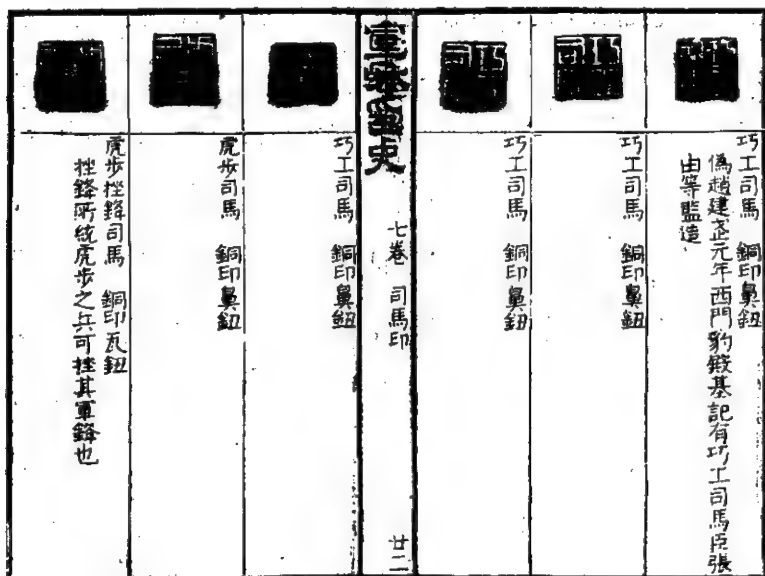 巧工司馬　銅印鼻鈕
偽趙建武元年西門豹殿基記有巧工司馬臣張
由等監造
巧工司馬　銅印鼻鈕
巧工司馬　銅印鼻鈕
七卷　司馬印
廿二
巧工司馬　銅印鼻鈕
虎步司馬　銅印鼻鈕
虎步挫鋒司馬　銅印瓦鈕
挫鋒所統虎步之兵可挫其軍鋒也